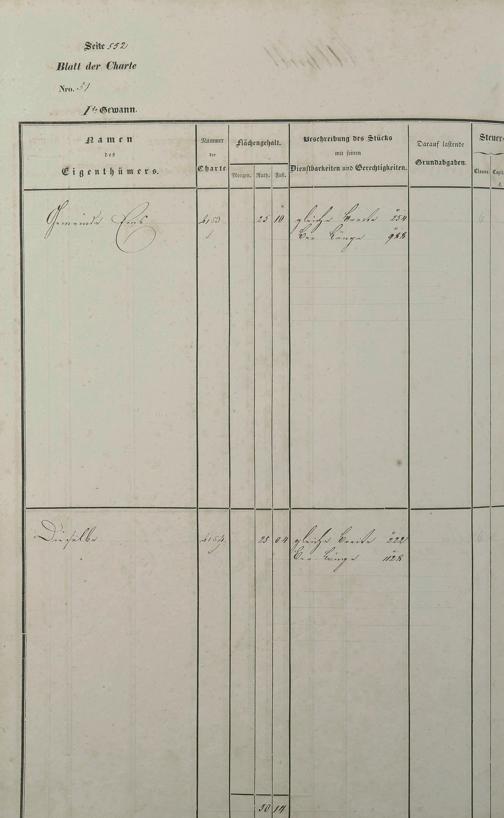 Seite 552
Blatt der Charte
Nro. 51
Gewann.
Namen
des
Eigenthümers.
Nummer
der
Charte
Flächengehalt.
Morgen. Ruth. Fuß.
Beschreibung des Stücks
mit seinen
Dienstbarkeiten und Gerechtigkeiten.
Darauf lastende
Grundabgaben.
Steuer-
Classe. Capit.
Gemeinde Ems 25 10 gleiche Breite 254
der Länge 988
Dieselbe 25 04 gleiche Breite 222
der Länge 1128
50 14